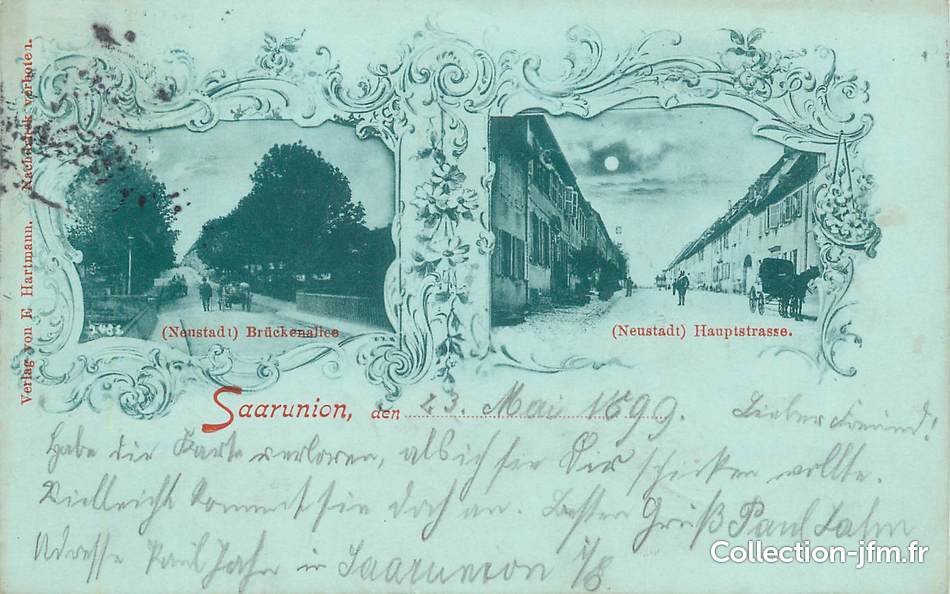 Verlag von E. Hartmann. Nachdruck verboten.
2485
(Neustadt) Brückenallee
(Neustadt) Hauptstrasse.
Saarunion, den 23. Mai 1899. Lieber Freund!
Habe die Karte verloren, als ich sie Dir schicken wollte.
Vielleicht kommt sie doch an. Besten Gruß Paul Jahn
Adresse Paul Jahn in Saarunion i/E.
Collection-jfm.fr